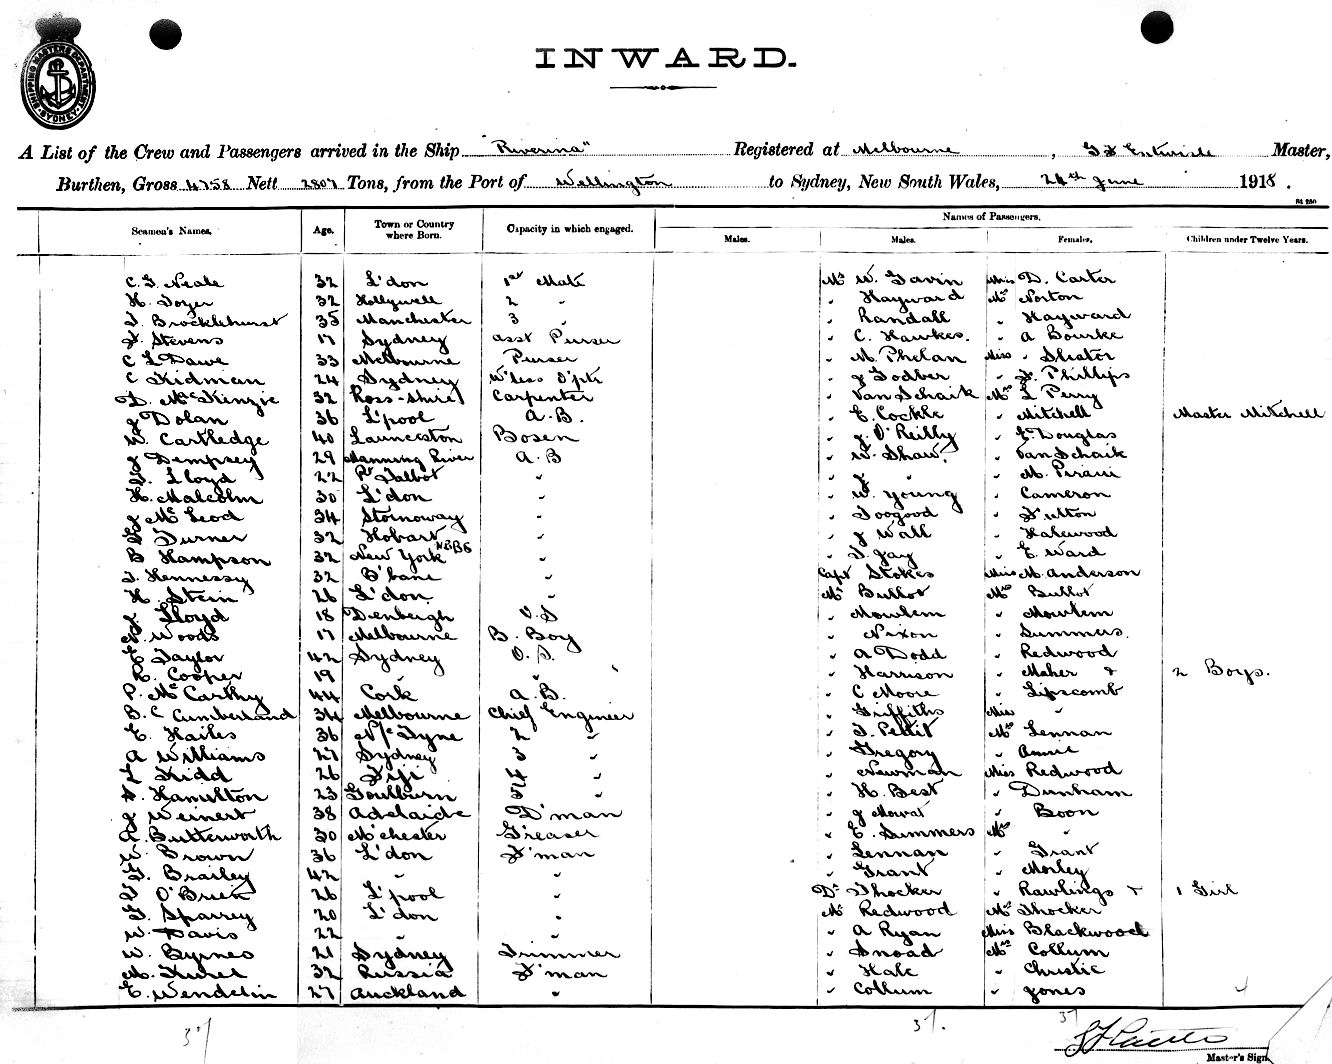 SHIPPING MASTERS DEPARTMENT SYDNEY
INWARD.
A List of the Crew and Passengers arrived in the Ship "Riverina" Registered at Melbourne, Master,
Burthen, Gross 4758 Nett 2807 Tons, from the Port of Wellington to Sydney, New South Wales, 24th June 1918.
Names of Passengers.
Seamen's Names. Age. Town or Country where Born. Capacity in which engaged. Males. Males. Females. Children under Twelve Years.
C. G. Neale 32 L'don 1st Mate Mr W. Gavin Miss D. Carter
H. Toyer 32 Hollywell 2 " " Hayward Mrs Norton
T. Brocklehurst 35 Manchester 3 " " Randall " Hayward
F. Stevens 17 Sydney Asst Purser " C. Hawkes. " A Bourke
C L Dawe 33 Melbourne Purser " M. Phelan Miss " Slator
C Kidman 24 Sydney W'less O'ptr " J Godber " F. Phillips
D. McKenzie 32 Ross-shire Carpenter " Van Schaik Mrs L Perry
J Dolan 36 L'pool A.B. " E. Cockle " Mitchell Master Mitchell
W. Cartledge 40 Launceston Bosen " J. O'Reilly " E. Douglas
J Dempsey 29 Manning River A.B " W. Shaw. " Van Schaik
T. Lloyd 22 Pt Talbot " " J " " M. Pirani
H. Malcolm 30 L'don " " W. Young " Cameron
J McLeod 34 Stornoway " " Toogood " Fulton
G Turner 32 Hobart " " J Wall " Hakewood
B Hampson 32 New York " " T. Jay " E. Ward
T. Hennessy 32 B'bane " Capt Stokes Miss M. Anderson
H. Stein 26 L'don " Mr Bullot Mrs Bullot
J Lloyd 18 Denbeigh O.S " Mowlem " Mowlem
Woods 17 Melbourne B. Boy " Nixon " Summers.
E Taylor 42 Sydney O.S. " A Dodd " Redwood
R. Cooper 19 " " " Harrison " Maher & 2 Boys.
P. McCarthy 44 Cork A.B. " C Moore " Lipscomb
B. C Cumberland 34 Melbourne Chief Engineer " Griffiths Miss "
E. Hailes 36 N/c Tyne 2 " " T. Pettit Mrs Lennan
A Williams 27 Sydney 3 " " Gregory " Annie
L Kidd 26 Fiji 4 " " Newman Miss Redwood
A. Hamilton 23 Goulburn 5 " " H. Best " Dunham
J Weinert 38 Adelaide D'man " J Mowat " Boon
A. Butterworth 30 M'chester Greaser " E. Summers Mrs "
W. Brown 36 L'don F'man " Lennan " Grant
G. Brailey 42 " " " Grant " Morley
T O'Brien 26 L'pool " Dr Thocker " Rawlings & 1 Girl
G. Sparrey 20 L'don " Mr Redwood Mrs Thocker
W. Davis 22 " " " A Ryan Miss Blackwood
W. Byrnes 21 Sydney Trimmer " Snoad Mrs Collum
M. 32 Russia F'man " Hale " Christie
E. Wendelin 27 Auckland " " Collum " Jones
37 37 37
Master's Sign